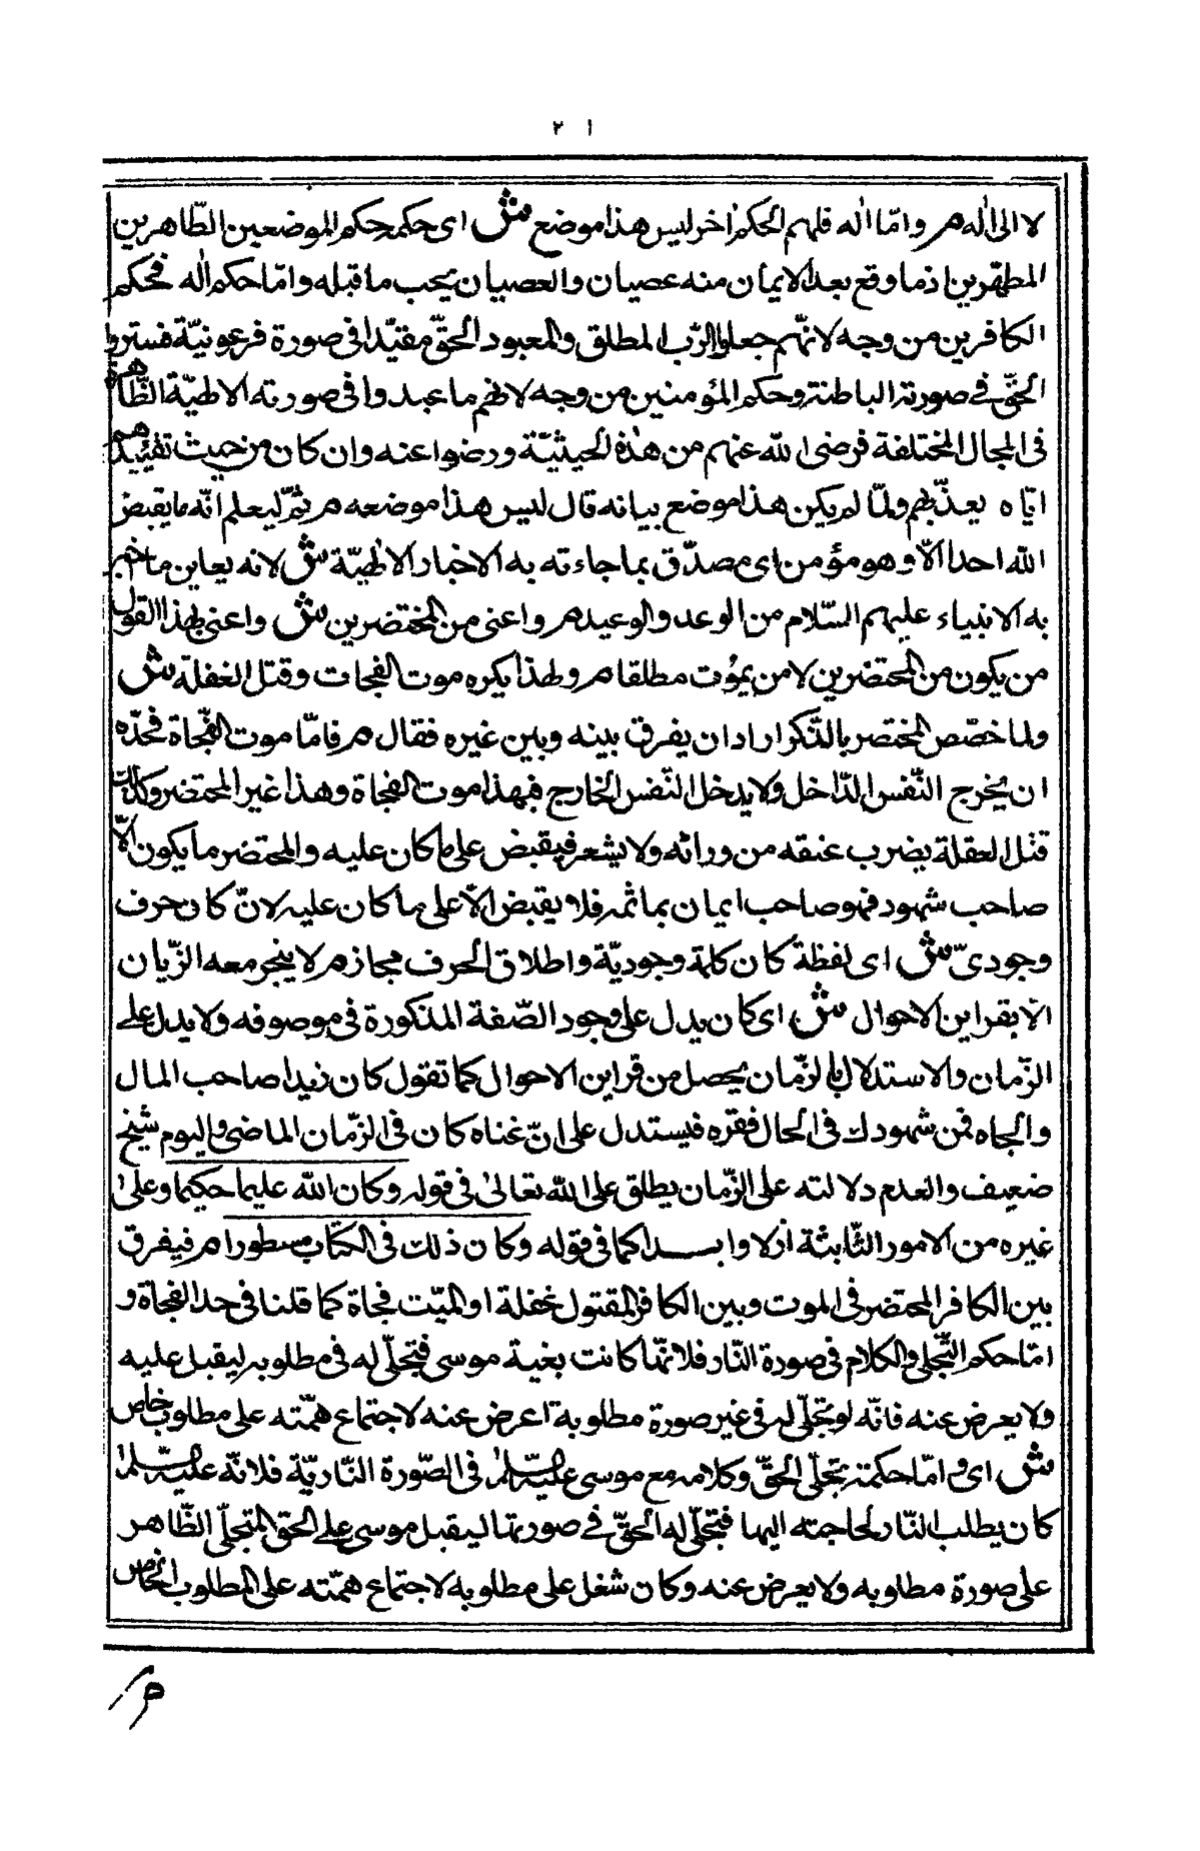 ٢ ١
لا الى اله م واما اله فلهم لحكم اخر ليس هذا موضع ش اى حكمه حكم الموضعين الطّاهرين
المطهّرين اذ ما وقع بعد الايمان منه عصيان والعصيان يجب ما قبله وامّا حكم اله فحكم
الكافرين من وجه لانّهم جعلوا الرّب المطلق والمعبود الحقّ مقيّدا فى صورة فرعونيّة فستروا
الحقّ فى صورته الباطنة وحكم المؤمنين من وجه لانهم ما عبدوا فى صورته الا الهيّة الظّاهرة
فى المجال المختلفة فرضى الله عنهم من هذه الحيثيّة ورضوا عنه وان كان من حيث تقييدهم
ايّاه يعذّبهم ولمّا لم يكن هذا موضع بيانه قال ليس هذا موضعه م ثمّ ليعلم انّه ما يقبض
الله احدا الاّ وهو مؤمن اى مصدّق بما جاءته به الاخبار الالهيّة ش لانه يعاين ما اخبر
به الانبياء عليهم السّلام من الوعد والوعيد م واعنى من المحتضرين ش واعنى بهذا القول
من يكون من المحتضرين لا من يموت مطلقا م ولهذا يكره موت الفجات وقتل الغفلة ش
ولما خصّص المختصر بالتّكرار اراد ان يفرق بينه وبين غيره فقال م فامّا موت الفجاة فحدّه
ان يخرج النّفس الدّاخل ولا يدخل النّفس الخارج فهذا موت الفجاة وهذا غير المحتضر وكذلك
قتل العقلة يضرب عنقه من ورائه ولا يشعر فيقبض على ما كان عليه والمحتضر ما يكون الّا
صاحب شهود فهو صاحب ايمان بما ثمه فلا يقبض الّا على ما كان عليه لانّ كان حرف
وجودىّ ش اى لفظة كان كلمة وجوديّة واطلاق الحرف مجاز م لا ينجر معه الزّيان
الّا بقراين الاحوال ش اى كان يدل على وجود الصّفة المذكورة فى موصوفه ولا يدل على
الزّمان والاستدلال بالزّمان يحصل من قراين الاحوال كما تقول كان زيد اصاحب المال
والجاه فمن شهودك فى الحال فقره فيستدل على انّ غناه كان فى الزّمان الماضى واليوم شيخ
ضعيف والعدم دلالته على الزّمان يطلق على الله تعالىٰ فى قوله وكان الله عليما حكيما وعلىٰ
غيره من الامور الثّابتة ازلا وابدا كما فى قوله وكان ذلك فى الكتاب مسطورا م فيفرق
بين الكافر المحتضر فى الموت وبين الكافر المقتول غفلة او الميّت فجاة كما قلنا فى حد الفجاة و
امّا حكم التّجلى والكلام فى صورة النّار فلانّها كانت بغية موسى فتجلّى له فى مطلوبه ليقبل عليه
ولا يعرض عنه فانّه لو تجلّى له فى غير صورة مطلوبة اعرض عنه لاجتماع همّته على مطلوب خاص
ش اى وامّا حكمة تجلّى الحقّ وكلامه مع موسى عليه السّلم فى الصّورة النّاريّة فلانّه عليه السّلم
كان يطلب النّار لحاجته اليها فتجلّى له الحقّ فى صورتها ليقبل موسى على الحق المتجلّى الظّاهر
على صورة مطلوبه ولا يعرض عنه وكان شغل على مطلوبه لاجتماع همّته على المطلوب الخاص
م